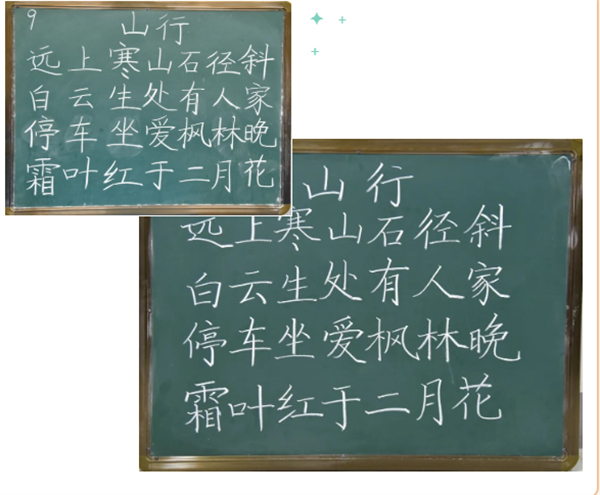 9
山行
远上寒山石径斜
白云生处有人家
停车坐爱枫林晚
霜叶红于二月花
山行
远上寒山石径斜
白云生处有人家
停车坐爱枫林晚
霜叶红于二月花